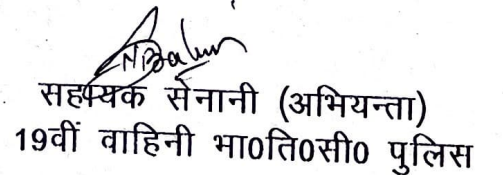 सहायक सेनानी (अभियन्ता)
19वीं वाहिनी भा0ति0सी0 पुलिस